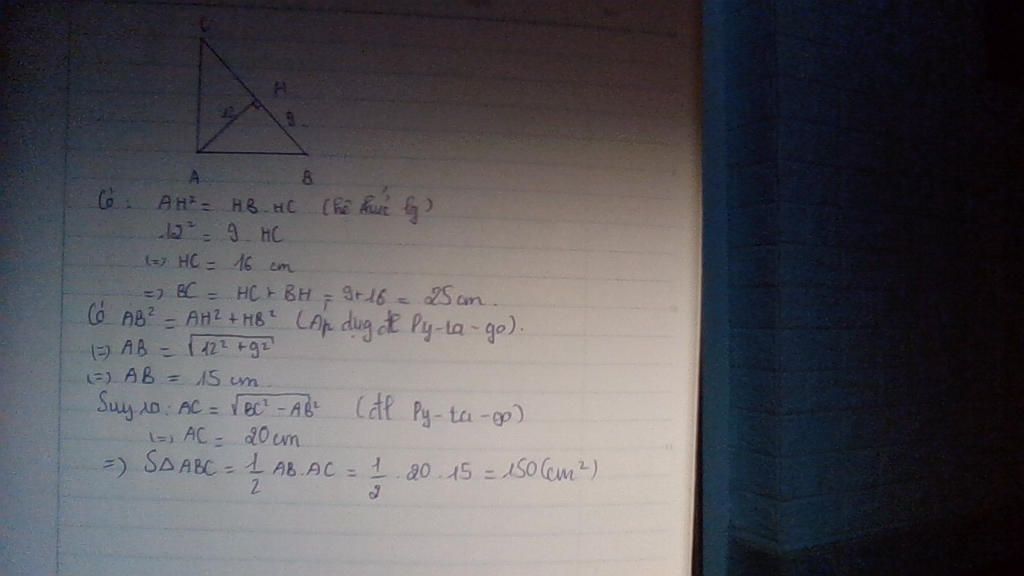 C
H
12
9
A
B
Có: AH² = HB.HC (hệ thức lg)
12² = 9.HC
(=) HC = 16 cm
=) BC = HC + BH = 9+16 = 25cm.
Có AB² = AH² + HB² (Áp dụg đl Py-ta-go).
(=) AB = √12² + 9²
(=) AB = 15 cm
Suy ra: AC = √BC² - AB² (đl Py-ta-go)
(=) AC = 20cm
=) SΔABC = 1/2 AB.AC = 1/2 . 20 . 15 = 150(cm²)